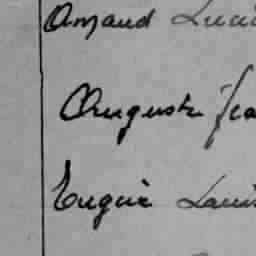 Amand Luci
Auguste Jea
Eugène Louis